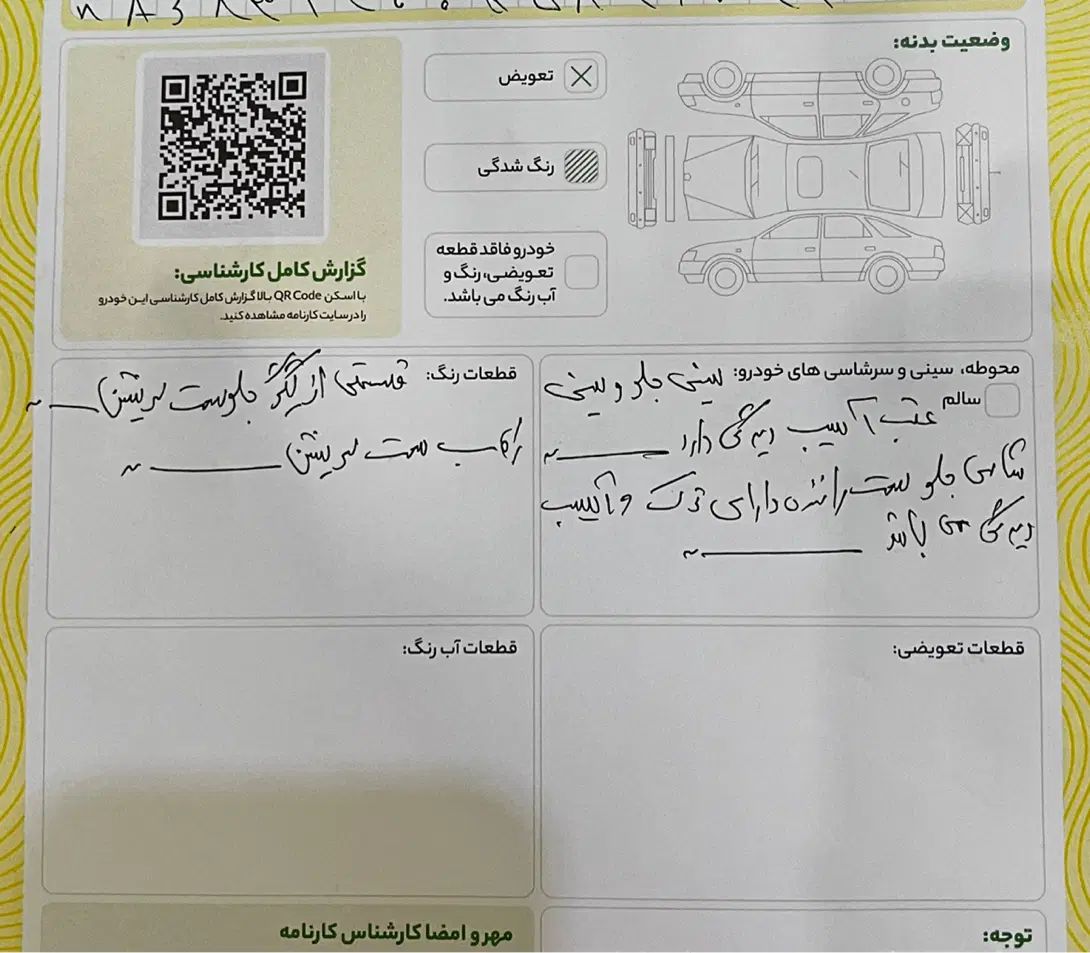 وضعیت بدنه:
تعویض
رنگ شدگی
خودرو فاقد قطعه
تعویضی، رنگ و
آب رنگ می باشد.
گزارش کامل کارشناسی:
با اسکن QR Code بالا گزارش کامل کارشناسی این خودرو
را در سایت کارنامه مشاهده کنید.
محوطه، سینی و سرشاسی های خودرو: سینی جلو و سینی
سالم
عقب آسیب دیدگی دارد
شاسی جلو سمت راننده دارای ترک و آسیب
دیدگی می باشد
قطعات رنگ: قسمتی از گلگیر جلو سمت
رکاب سمت
قطعات تعویضی:
قطعات آب رنگ:
توجه:
مهر و امضا کارشناس کارنامه